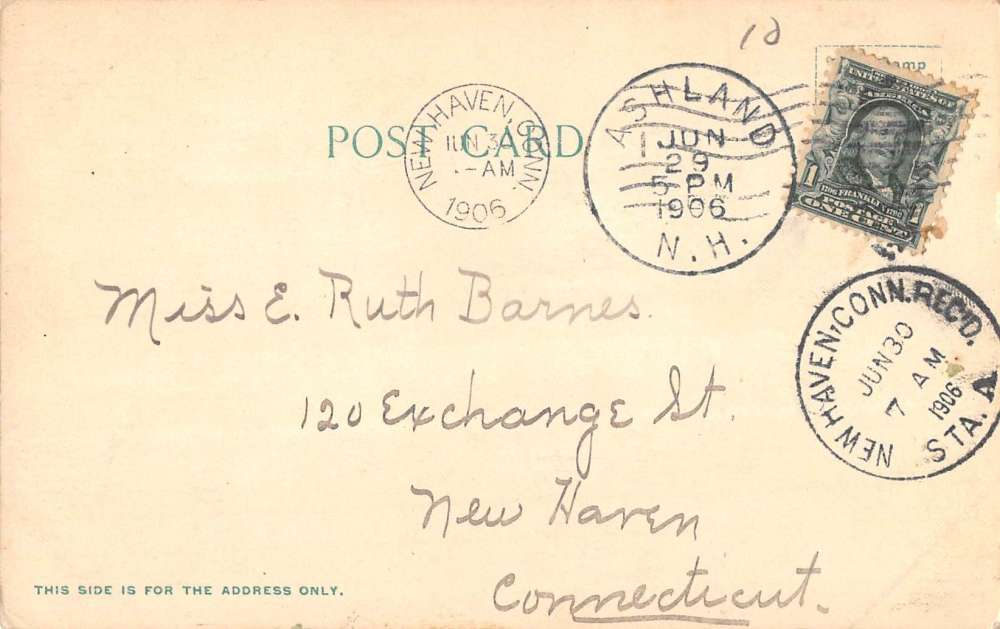 10
POST CARD
NEW HAVEN, CONN.
JUN 3
AM
1906
ASHLAND
JUN
29
5 PM
1906
N.H.
UNITED STATES OF
AMERICA
1 1
1706 FRANKLIN 1790
POSTAGE
ONE CENT
NEW HAVEN, CONN. REC'D.
JUN 30
7 AM
1906
STA. A
Miss E. Ruth Barnes.
120 Exchange St.
New Haven
Connecticut.
THIS SIDE IS FOR THE ADDRESS ONLY.